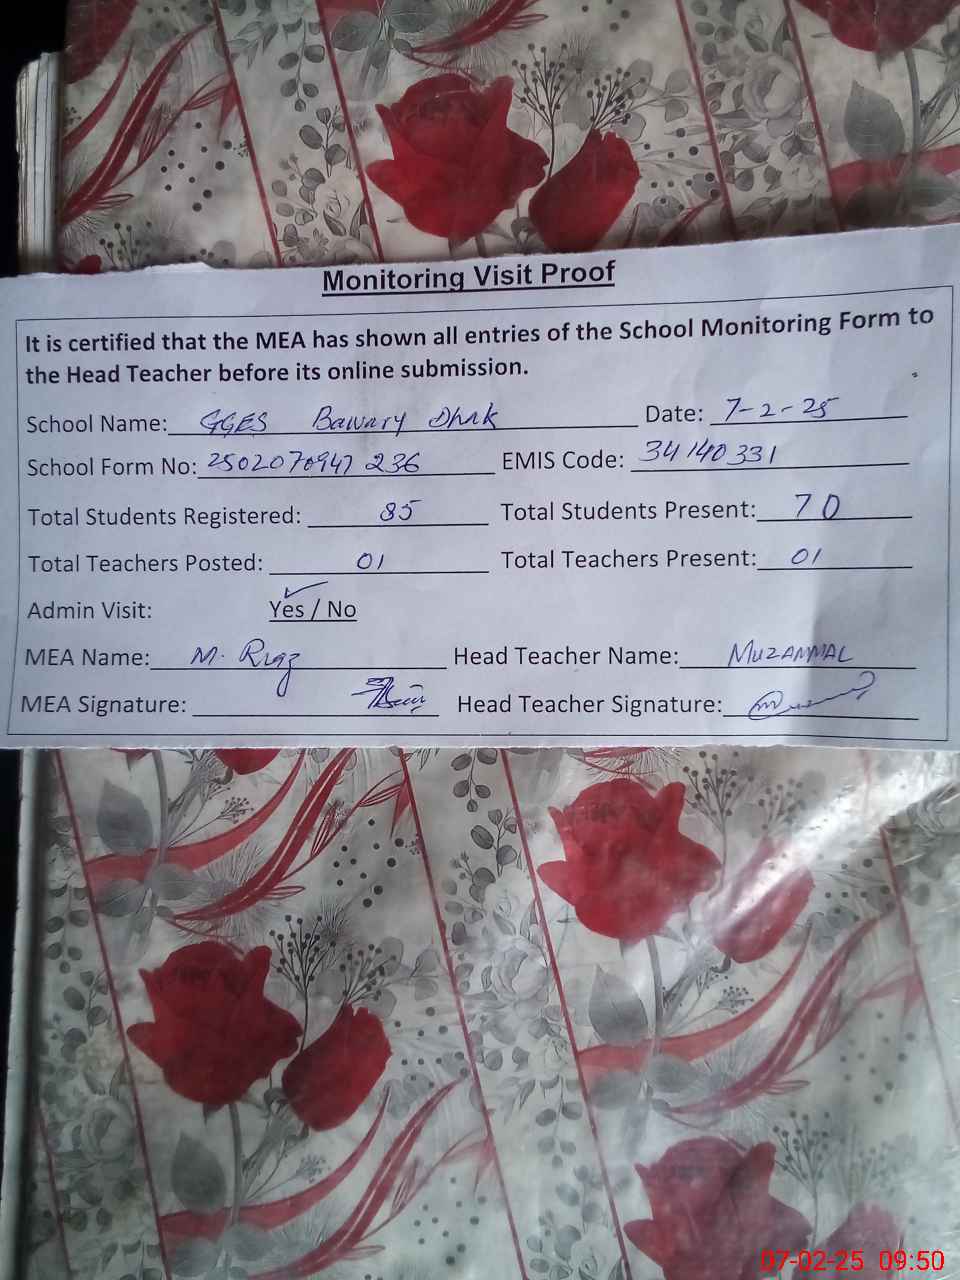 Monitoring Visit Proof
It is certified that the MEA has shown all entries of the School Monitoring Form to
the Head Teacher before its online submission.
School Name: GGES Bawary Dhak Date: 7-2-25
School Form No: 2502070947236 EMIS Code: 34140331
Total Students Registered: 85 Total Students Present: 70
Total Teachers Posted: 01 Total Teachers Present: 01
Admin Visit: Yes / No
MEA Name: M. Riaz Head Teacher Name: MUZAMMAL
MEA Signature: Head Teacher Signature:
07-02-25 09:50